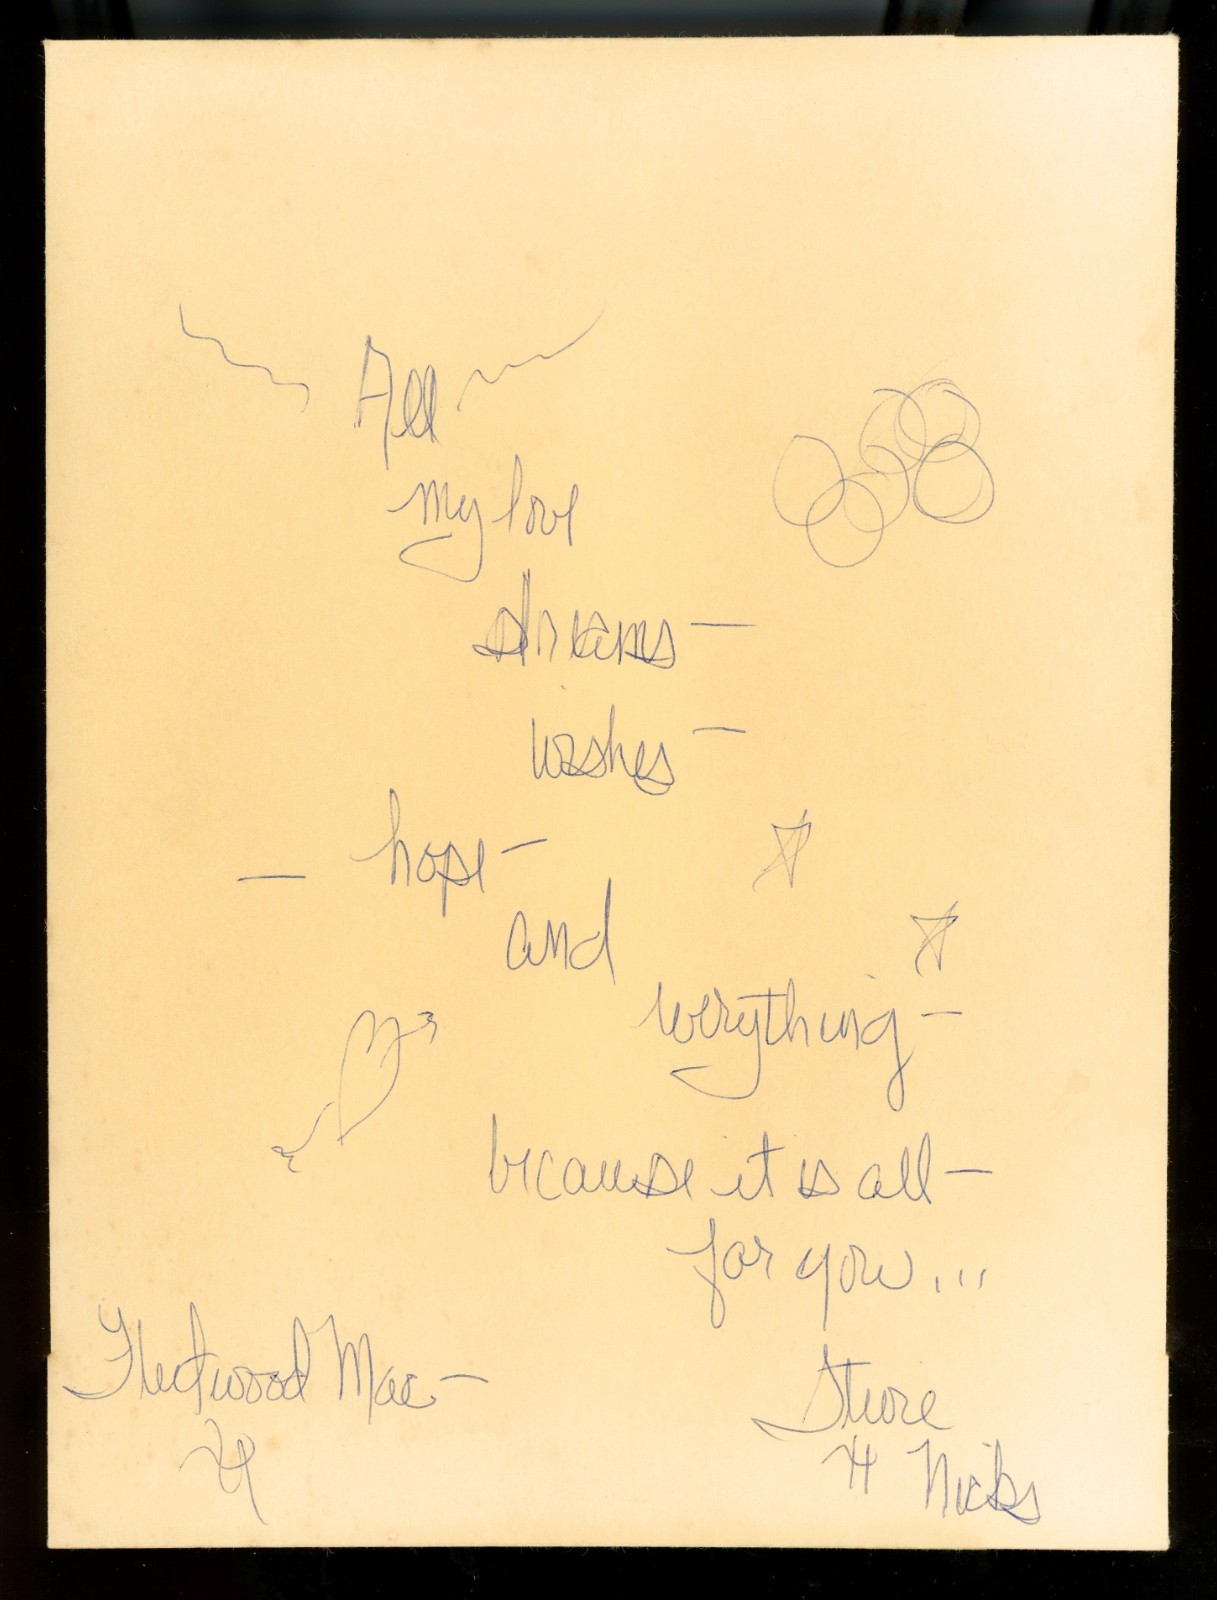 All
my love
dreams —
wishes —
— hope —
and
everything —
because it is all —
for you...
Fleetwood Mac —
Stevie
Nicks